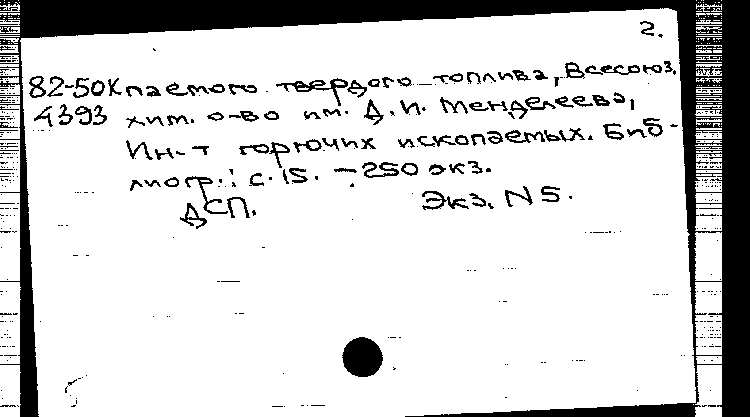 2.
82-50К паемого твердого топлива, Всесоюз.
4393 хим. о-во им. Д. И. Менделеева,
Ин-т горючих ископаемых. Биб-
лиогр.: с. 15. - 250 экз.
ДСП. Экз. N 5.